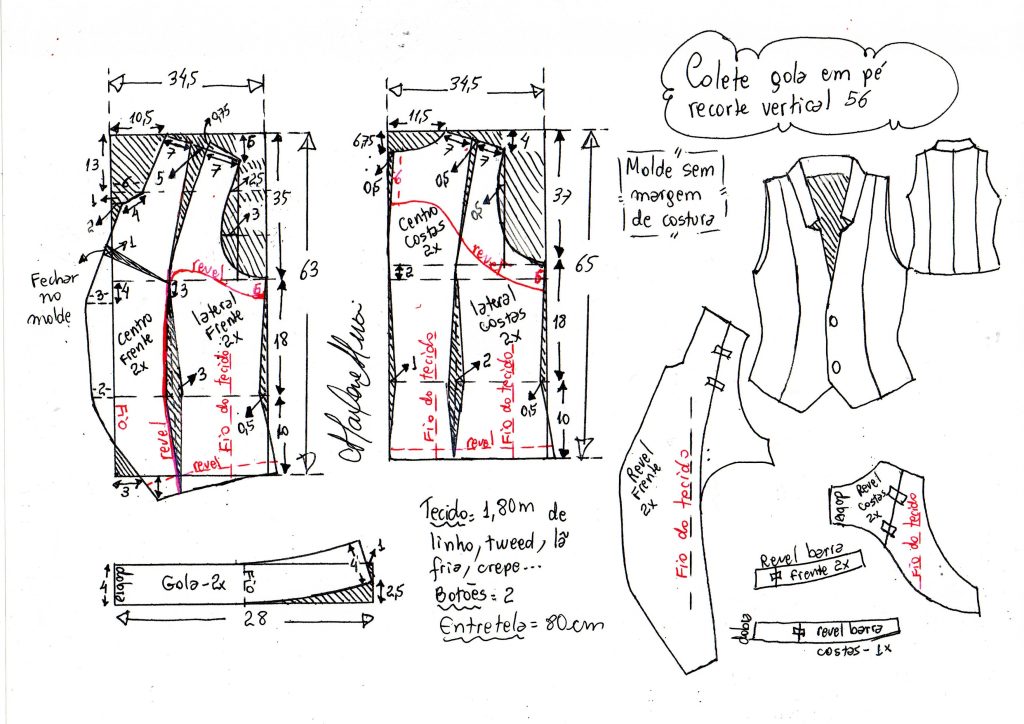 Colete gola em pé
recorte vertical 56
Molde sem
margem
de costura
34,5
10,5
0,75
13
7
5
7
6
2,5
5
1
2
4
3
35
1
63
Fechar
no
molde
3
4
3
revel
6
Centro
Frente
2x
lateral
Frente
2x
18
2
3
Fio
revel
Fio do tecido
0,5
10
revel
3
34,5
11,5
6,75
7
4
0,5
6
0,5
0,5
37
Centro
Costas
2x
revel
6
2
65
lateral
Costas
2x
18
1
2
Fio do tecido
Fio do tecido
0,5
10
revel
4
dobra
Gola-2x
Fio
4
1
2,5
28
Tecido= 1,80m de
linho, tweed, lã
fria, crepe...
Botões= 2
Entretela= 80cm
Revel
Frente
2x
Fio do tecido
dobra
Revel
Costas
2x
Fio do tecido
Revel barra
frente 2x
dobra
revel barra
costas-1x